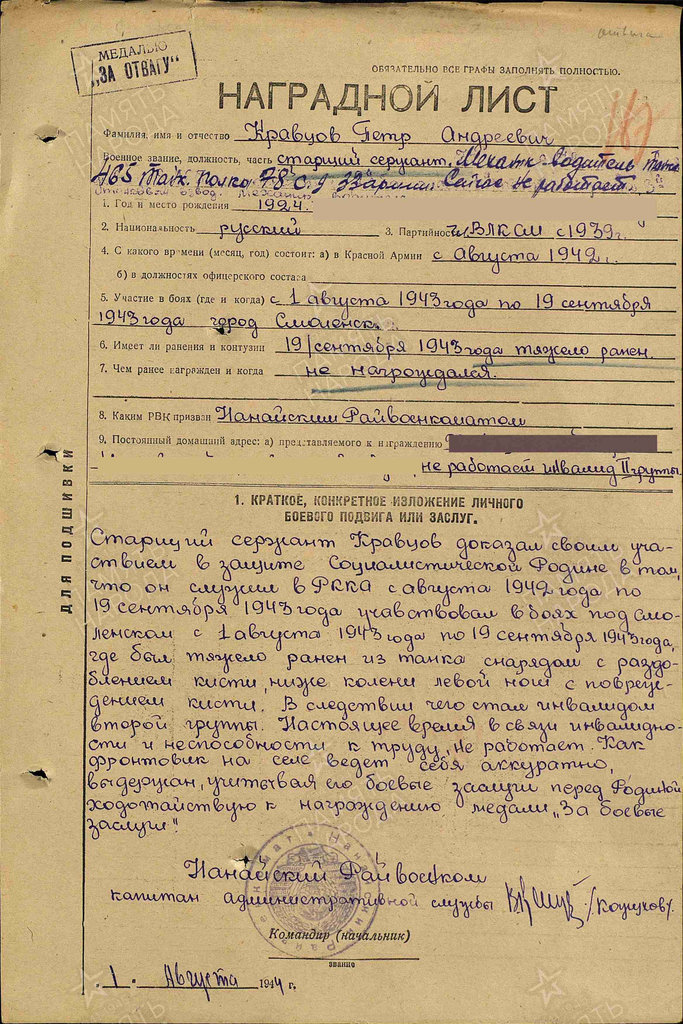 МЕДАЛЬЮ
"ЗА ОТВАГУ"
ОБЯЗАТЕЛЬНО ВСЕ ГРАФЫ ЗАПОЛНЯТЬ ПОЛНОСТЬЮ.
НАГРАДНОЙ ЛИСТ
Фамилия, имя и отчество Кравцов Петр Андреевич
Военное звание, должность, часть старший сержант. Механик-водитель танка
465 Танк. полка 78 С. Сейчас не работает.
1. Год и место рождения 1924.
2. Национальность русский 3. Партийность чл. ВЛКСМ с 1939 г.
4. С какого времени (месяц, год) состоит: а) в Красной Армии с августа 1942 г.
б) в должностях офицерского состава
5. Участие в боях (где и когда) с 1 августа 1943 года по 19 сентября
1943 года город Смоленск.
6. Имеет ли ранения и контузии 19/сентября 1943 года тяжело ранен.
7. Чем ранее награжден и когда не награждался.
8. Каким РВК призван Нанайским Райвоенкоматом
9. Постоянный домашний адрес: а) представляемого к награждению
не работает инвалид II группы.
ДЛЯ ПОДШИВКИ
1. КРАТКОЕ, КОНКРЕТНОЕ ИЗЛОЖЕНИЕ ЛИЧНОГО
БОЕВОГО ПОДВИГА ИЛИ ЗАСЛУГ.
Старший сержант Кравцов доказал своим уча-
ствием в защите Социалистической Родине в том,
что он служил в РККА с августа 1942 года по
19 сентября 1943 года учавствовал в боях под Смо-
ленском с 1 августа 1943 года по 19 сентября 1943 года,
где был тяжело ранен из танка снарядом с раздо-
блением кисти, ниже колени левой ноги с повреж-
дением кисти. В следствии чего стал инвалидом
второй группы. Настоящее время в связи инвалидно-
сти и неспособности к труду, не работает. Как
фронтовик на селе ведет себя аккуратно,
выдержан, учитывая его боевые заслуги перед Родиной
ходотайствую к награждению медали "За боевые
заслуги".
Нанайский Райвоенком
капитан административной службы /Кошучов/.
Командир (начальник)
звание
"1" Августа 1944 г.